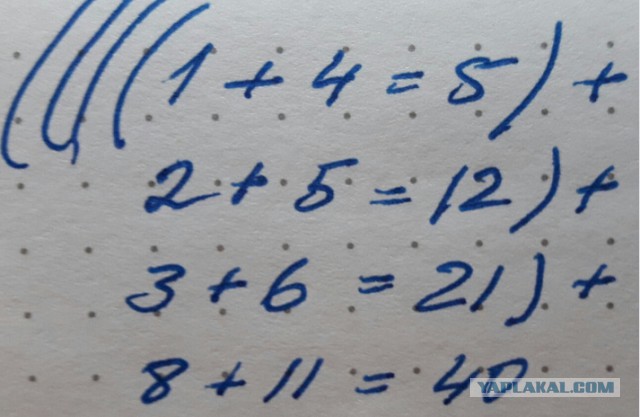 ((((1 + 4 = 5) +
2 + 5 = 12) +
3 + 6 = 21) +
8 + 11 = 40
YAPLAKAL.COM